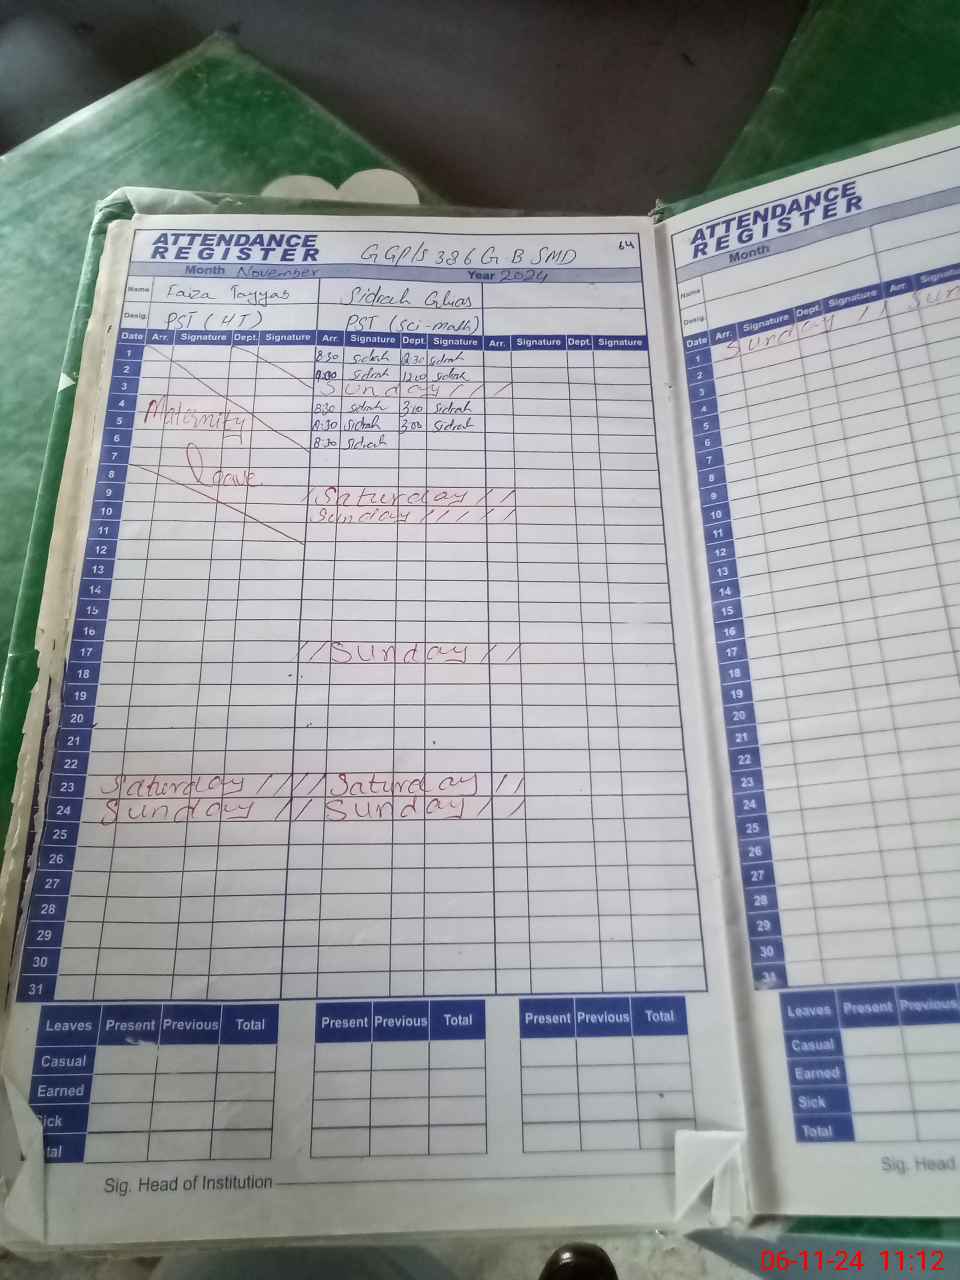 ATTENDANCE
REGISTER
GGP/S 386 G.B SMD
64
Month November Year 2024
Name Faiza Tayyab Sidrah Ghias
Desig. PST (UT) PST (sci-math)
Date Arr. Signature Dept. Signature Arr. Signature Dept. Signature Arr. Signature Dept. Signature
1 8:30 Sidrah 12:30 Sidrah
2 Sidrah 12:00 Sidrah
3 Sunday //
4 8:30 Sidrah 3:10 Sidrah
5 Maternity 8:30 Sidrah 3:00 Sidrah
6 8:30 Sidrah
7
8 Leave
9 / Saturday //
10 Sunday /////
11
12
13
14
15
16
17 // Sunday //
18
19
20
21
22
23 Saturday //// Saturday //
24 Sunday // Sunday //
25
26
27
28
29
30
31
Leaves Present Previous Total Present Previous Total Present Previous Total
Casual
Earned
ick
tal
Sig. Head of Institution
ATTENDANCE
REGISTER
Month
Name
Desig.
Date Arr. Signature Dept. Signature Arr. Signatu
1 Sunday // Sun
2
3
4
5
6
7
8
9
10
11
12
13
14
15
16
17
18
19
20
21
22
23
24
25
26
27
28
29
30
31
Leaves Present Previous
Casual
Earned
Sick
Total
Sig. Head
06-11-24 11:12